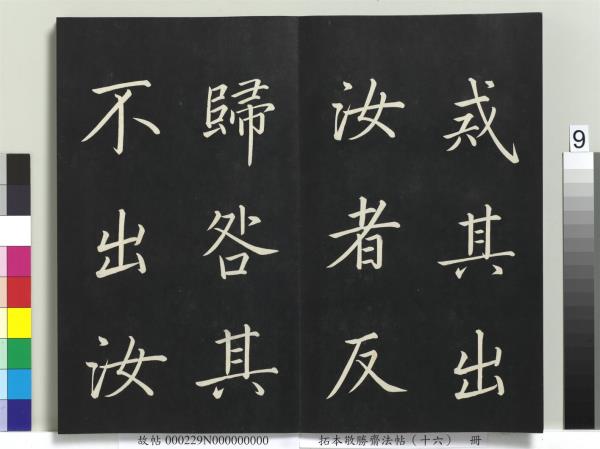 忒其出
汝者反
歸咎其
不出汝
9
故帖 000229N000000000 拓本敬勝齋法帖（十六） 冊